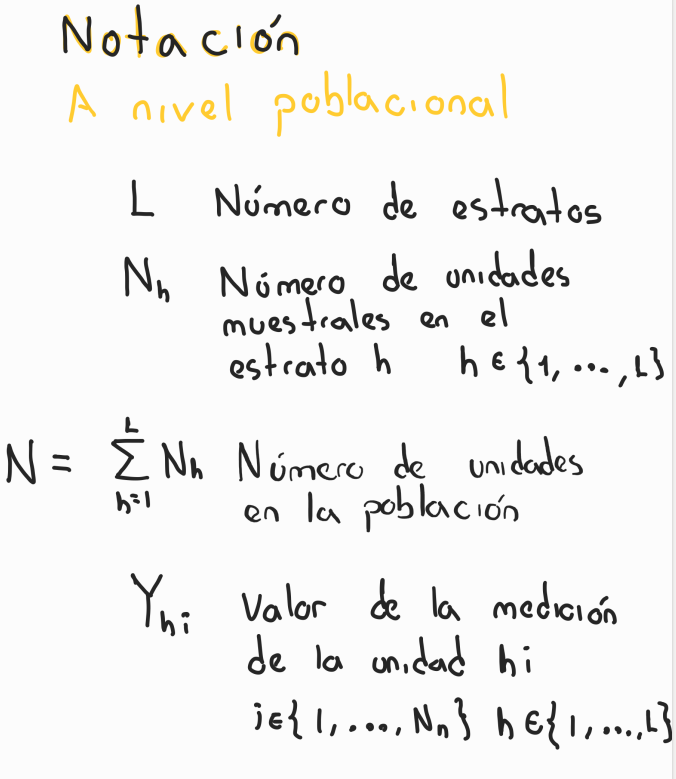 Notación
A nivel poblacional
L Número de estratos
N_h Número de unidades
muestrales en el
estrato h h ∈ {1, ..., L}
N = ∑_{h=1}^{L} N_h Número de unidades
en la población
Y_{hi} Valor de la medición
de la unidad hi
i ∈ {1, ..., N_n} h ∈ {1, ..., L}